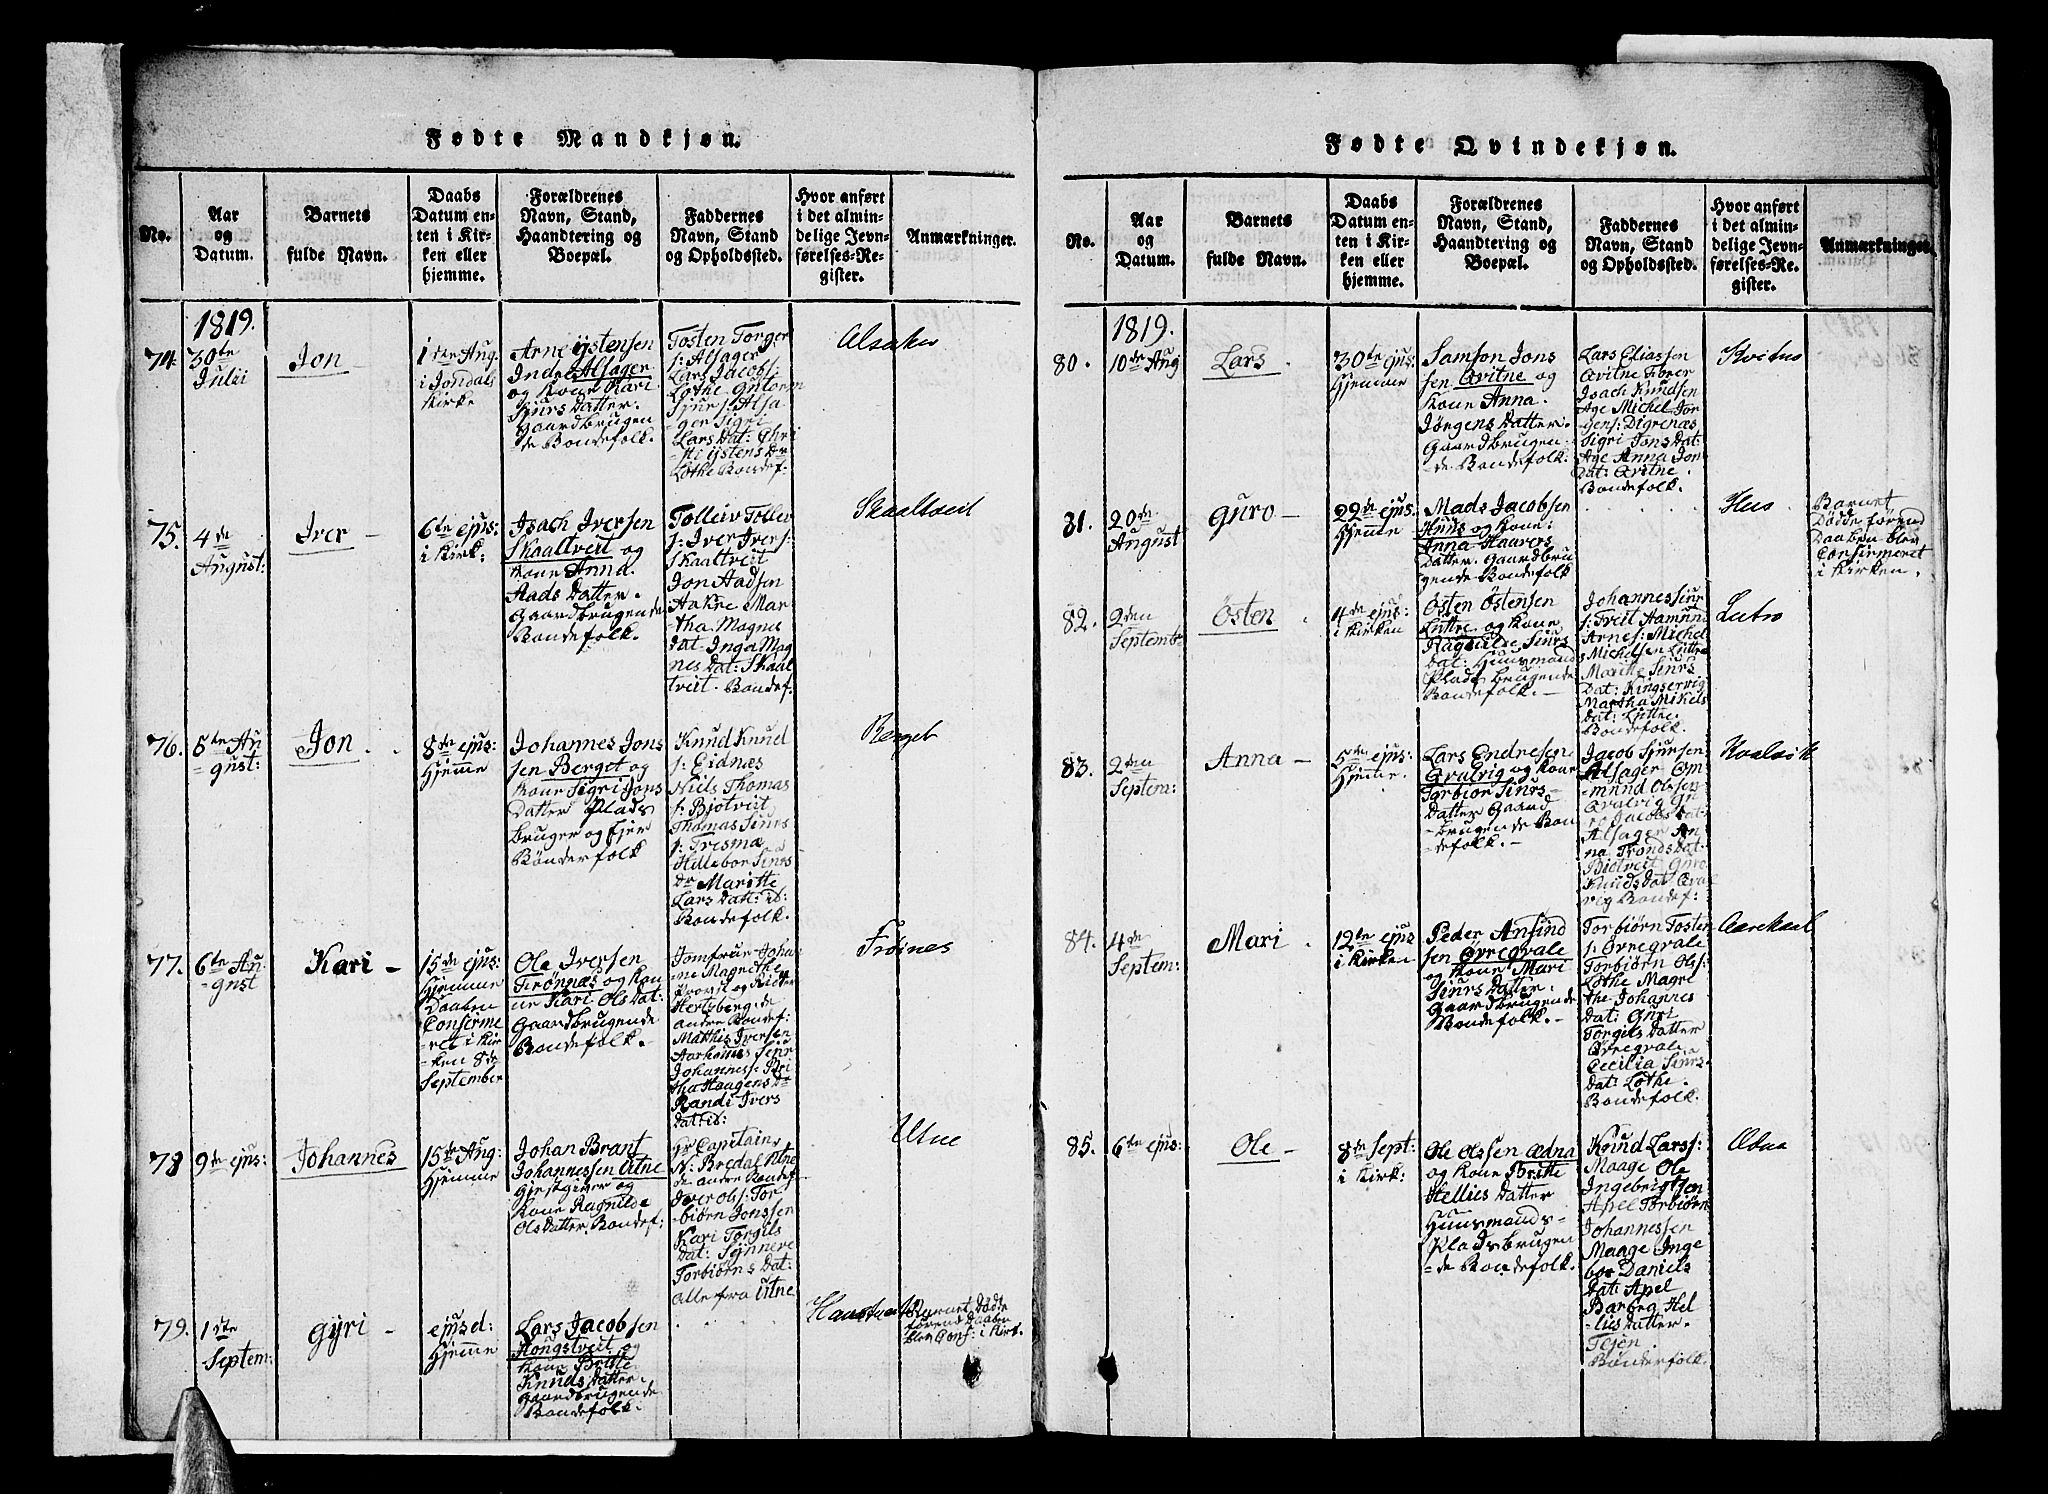 Fødte Mandkjøn.
No.
Aar
og
Datum.
Barnets
fulde Navn.
Daabs
Datum en-
ten i Kir-
ken eller
hjemme.
Forældrenes
Navn, Stand,
Haandtering og
Boepæl.
Faddernes
Navn, Stand
og Opholdssted.
Hvor anført
i det almin-
delige Jevn-
førelses-Re-
gister.
Anmærkninger.
1819.
74.
30te
Julii
Jon
1ste Aug.
i Jondals
Kirke
Arne Ÿstensen
Indre Alsager
og Kone Kari
Sjurs Datter.
Gaardbrugen
de Bondefolk.
Tosten Torger
s: Alsager
Lars Jacobs:
Lothe Gutorm
Sjurs: Alsa
ger Sigri
Lars Dat: Chri
sti Ÿstens Dr
Lothe Bondef.
Alsaker
75.
4de
August:
Iver –
6te ejus:
i Kirk:
Isach Iversen
Skaaltveit og
Kone Anna
Aads Datter.
Gaardbrugende
Bondefolk.
Tolleiv Tollev
s: Iver Ivers:
Skaaltveit
Jon Aadsen
Aakre Mar
tha Magne
Dat. Inga Mag
nes Dat: Skaal
tveit. Bondef.
Skaaltveit
76.
5te Au
=gust:
Jon
8de ejus:
Hjemme
Johannes Jons
sen Berget og
Kone Sigri Jons
Datter Plads
bruger og Ejer
Bønderfolk
Knud Knud
s: Eidnæs
Niels Thomas
s: Bjotveit
Thomas Siurs
s: Tresmæ
Hellebor Siurs
Dr Maritte
Lars Dat: ib:
Bondefolk.
Berget
77.
6te Au
=gust
Kari –
15de ejus:
Hjemme
Daaben
Confirme
=ret i Kir
=ken 8de
September
Ole Iversen
Trønnæs og Ko
ne Kari Ols Dat:
Gaardbrugende
Bondefolk.
Jomfrue Johan
ne Magrethe
Provst og Ridder
Hertsberg de
andre Bondef:
Matthis Iversen
Aarhanes Siur
Johanness: Bri
tha Haagens Dr
Randi Ivers
Dat ib:
Trøines
78
9de ejus:
Johannes
15de Aug:
Hjemme
Johan Brant
Johannessen Utne
Gjestgiver og
Kone Ragnilde
Ols Datter. Bondef:
Hr Capitain
N: Bredal Utne
de andre Bondef.
Iver Ols: Tor
biørn Jonssen
Kari Torgils
Dat: Sÿnneve
Torbiørns Dat:
alle fra Utne
Utne
79.
1ste
Septem:
Gÿri –
ejusd:
Hjemme
Lars Jacobsen
Hougstveit og
Kone Britte
Knuds Datter.
Gaardbrugende
Bondefolk.
Barnet Dødde
førend Daaben
blev Conf: i Kirk.
Fødte Qvindekjøn.
No.
Aar
og
Datum.
Barnets
fulde Navn.
Daabs
Datum en-
ten i Kir-
ken eller
hjemme.
Forældrenes
Navn, Stand,
Haandtering og
Boepæl.
Faddernes
Navn, Stand
og Opholdssted.
Hvor anført
i det almin-
delige Jevn-
førelses-Re-
gister.
Anmærkninger.
1819.
80.
10de Aug
Lars
30te ejus:
Hjemme
Samson Jons
sen Qvitne og
Kone Anna
Jørgens Datter.
Gaardbrugen
de Bondefolk:
Lars Eliassen
Qvitne Torer
Isach Knudsen
Age Michel Jør
gens: Digrenæs
Sigri Jons Dat:
Age Anna Jon
Dat: Qvitne.
Bondefolk.
Kvitno
81.
20de
August
Guro –
29de ejus:
Hjemme
Mads Jacobsen
Huus og Kone:
Anna Haavers
Datter. Gaardbru
gende Bondefolk
Hus
Barnet
Dødde førend
Daaben blev
Confirmeret
i Kirken.
82.
2den
Septemb:
Östen
4de ejus:
i Kirken
Östen Östensen
Luttre og Kone
Ragnilde Siurs
Dat: Huusmands
Plads brugende
Bondefolk. –
Johannes Siur
s: Treit Aamun
Arnes: Michel
Michelsen Luttre
Maritte Siurs
Dat: Kingservig
Martha Mikels
Dat: Luttre.
Bondefolk.
Lutro
83.
2den
Septem:
Anna –
5te ejus:
Hjemme.
Lars Endresen
Qvalvig og Kone
Torbior Siurs
Datter Gaard
=brugende Bon
=defolk. –
Jacob Sjursen
Alsager Om
mund Olsen
Qvalvig Gu
ro Jacobs Dat:
Alsager An
na Tronds Dat
Bjotveit Guro
Knuds Dat Qval
vig Bondef:
Kvalvik
84.
4de
Septem:
Mari
12te ejus
i Kirken
Peder Amund
sen Øvreqvale
og Kone Mari
Siurs Datter.
Gaardbrugende
Bondefolk. –
Torbiørn Tosten
s: Øvreqvale
Torbiørn Ols:
Lothe Magre
the Johannes
Dat: Guri
Torgils Datter
Øvreqvale
Cecilia Siurs
Dat: Lothe.
Bondefolk.
85.
6te ejus:
Ole –
8de Sept:
i Kirk:
Ole Olssen Ædna
og Kone Britte
Hellies Datter
Huusmands
Plads brugen
=de Bondefolk.
Knud Lars:
Maage Ole
Ingebrigtsen
Apel Torbiørn
Johannessen
Maage Inge
bor Daniels
Dat: Apel
Barbra Hel
=lies Datter.
Tejen.
Bønderfolk.
Ædna